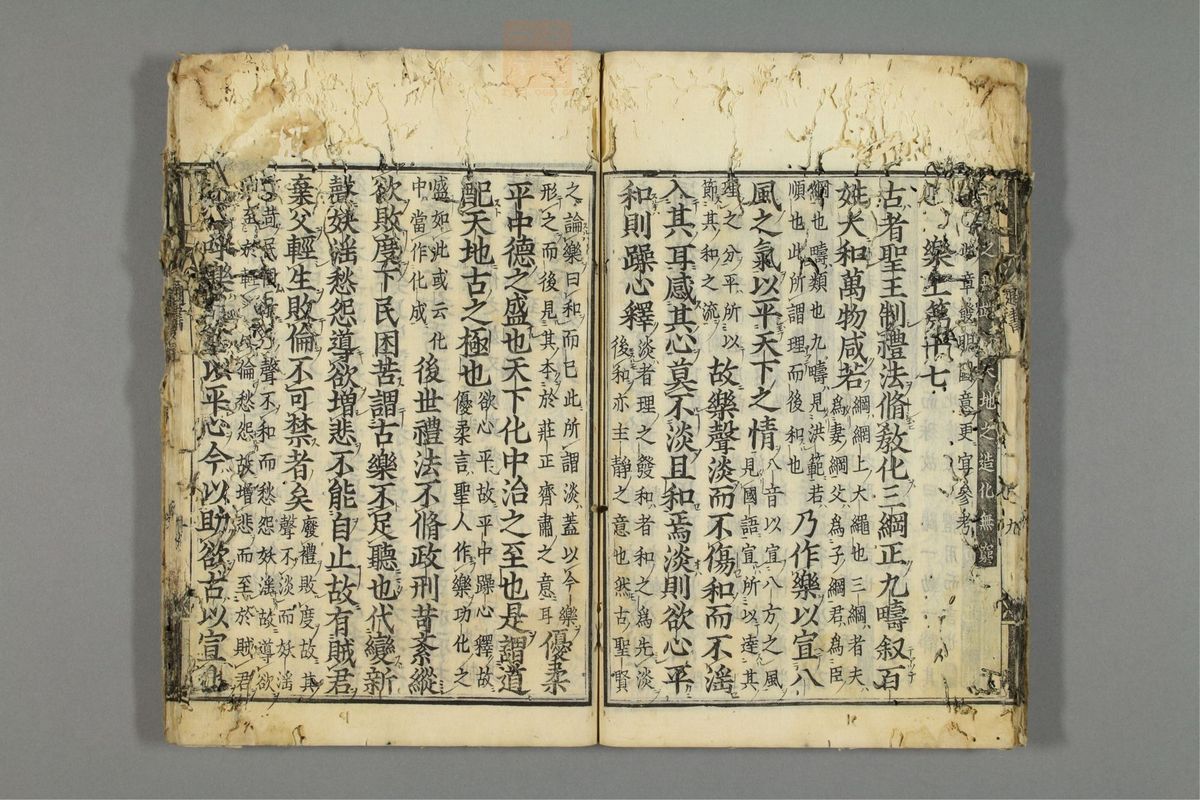 天地之造化無窮
此章發明圖意更宜參考
樂上第十七
古者聖王制禮法脩教化三綱正九疇叙百
姓大和萬物咸若
綱網上大繩也三綱者夫
爲妻綱父爲子綱君爲臣
綱也疇類也九疇見洪範若
順也此所謂理而後和也
乃作樂以宣八
風之氣以平天下之情
八音以宣八方之風
見國語宣所以達其
理之分平所以
節其和之流
故樂聲淡而不傷和而不滛
入其耳感其心莫不淡且和焉淡則欲心平
和則躁心釋
淡者理之發和者和之爲先淡
後和亦主靜之意也然古聖賢
之論樂曰和而已此所謂淡蓋以今樂
形之而後見其本於莊正齊肅之意耳
優柔
平中德之盛也天下化中治之至也是謂道
配天地古之極也
欲心平故平中躁心釋故
優柔言聖人作樂功化之
盛如此或云化
中當作化成
後世禮法不脩政刑苛紊縱
欲敗度下民困苦謂古樂不足聽也代變新
聲妖滛愁怨導欲增悲不能自止故有賊君
棄父輕生敗倫不可禁者矣
廢禮敗度故其
聲不淡而妖滛
苛民困故其聲不和而愁怨妖滛故導欲
而至於輕生敗倫愁怨故增悲而至於賊君
呼樂者古以平心今以助欲古以宣